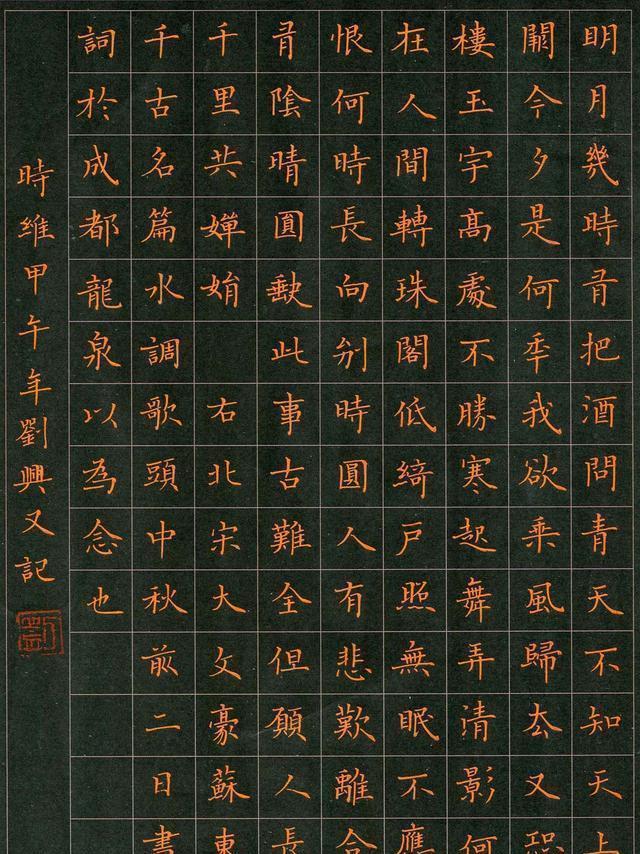 明月幾時有把酒問青天不知天上
闕今夕是何年我欲乘風歸去又恐
樓玉宇高處不勝寒起舞弄清影何
在人間轉珠閣低綺戶照無眠不應
恨何時長向別時圓人有悲歡離合
有陰晴圓缺此事古難全但願人長
千里共嬋娟 右北宋大文豪蘇東
千古名篇水調歌頭中秋前二日書
詞於成都龍泉以為念也
時維甲午年劉興又記